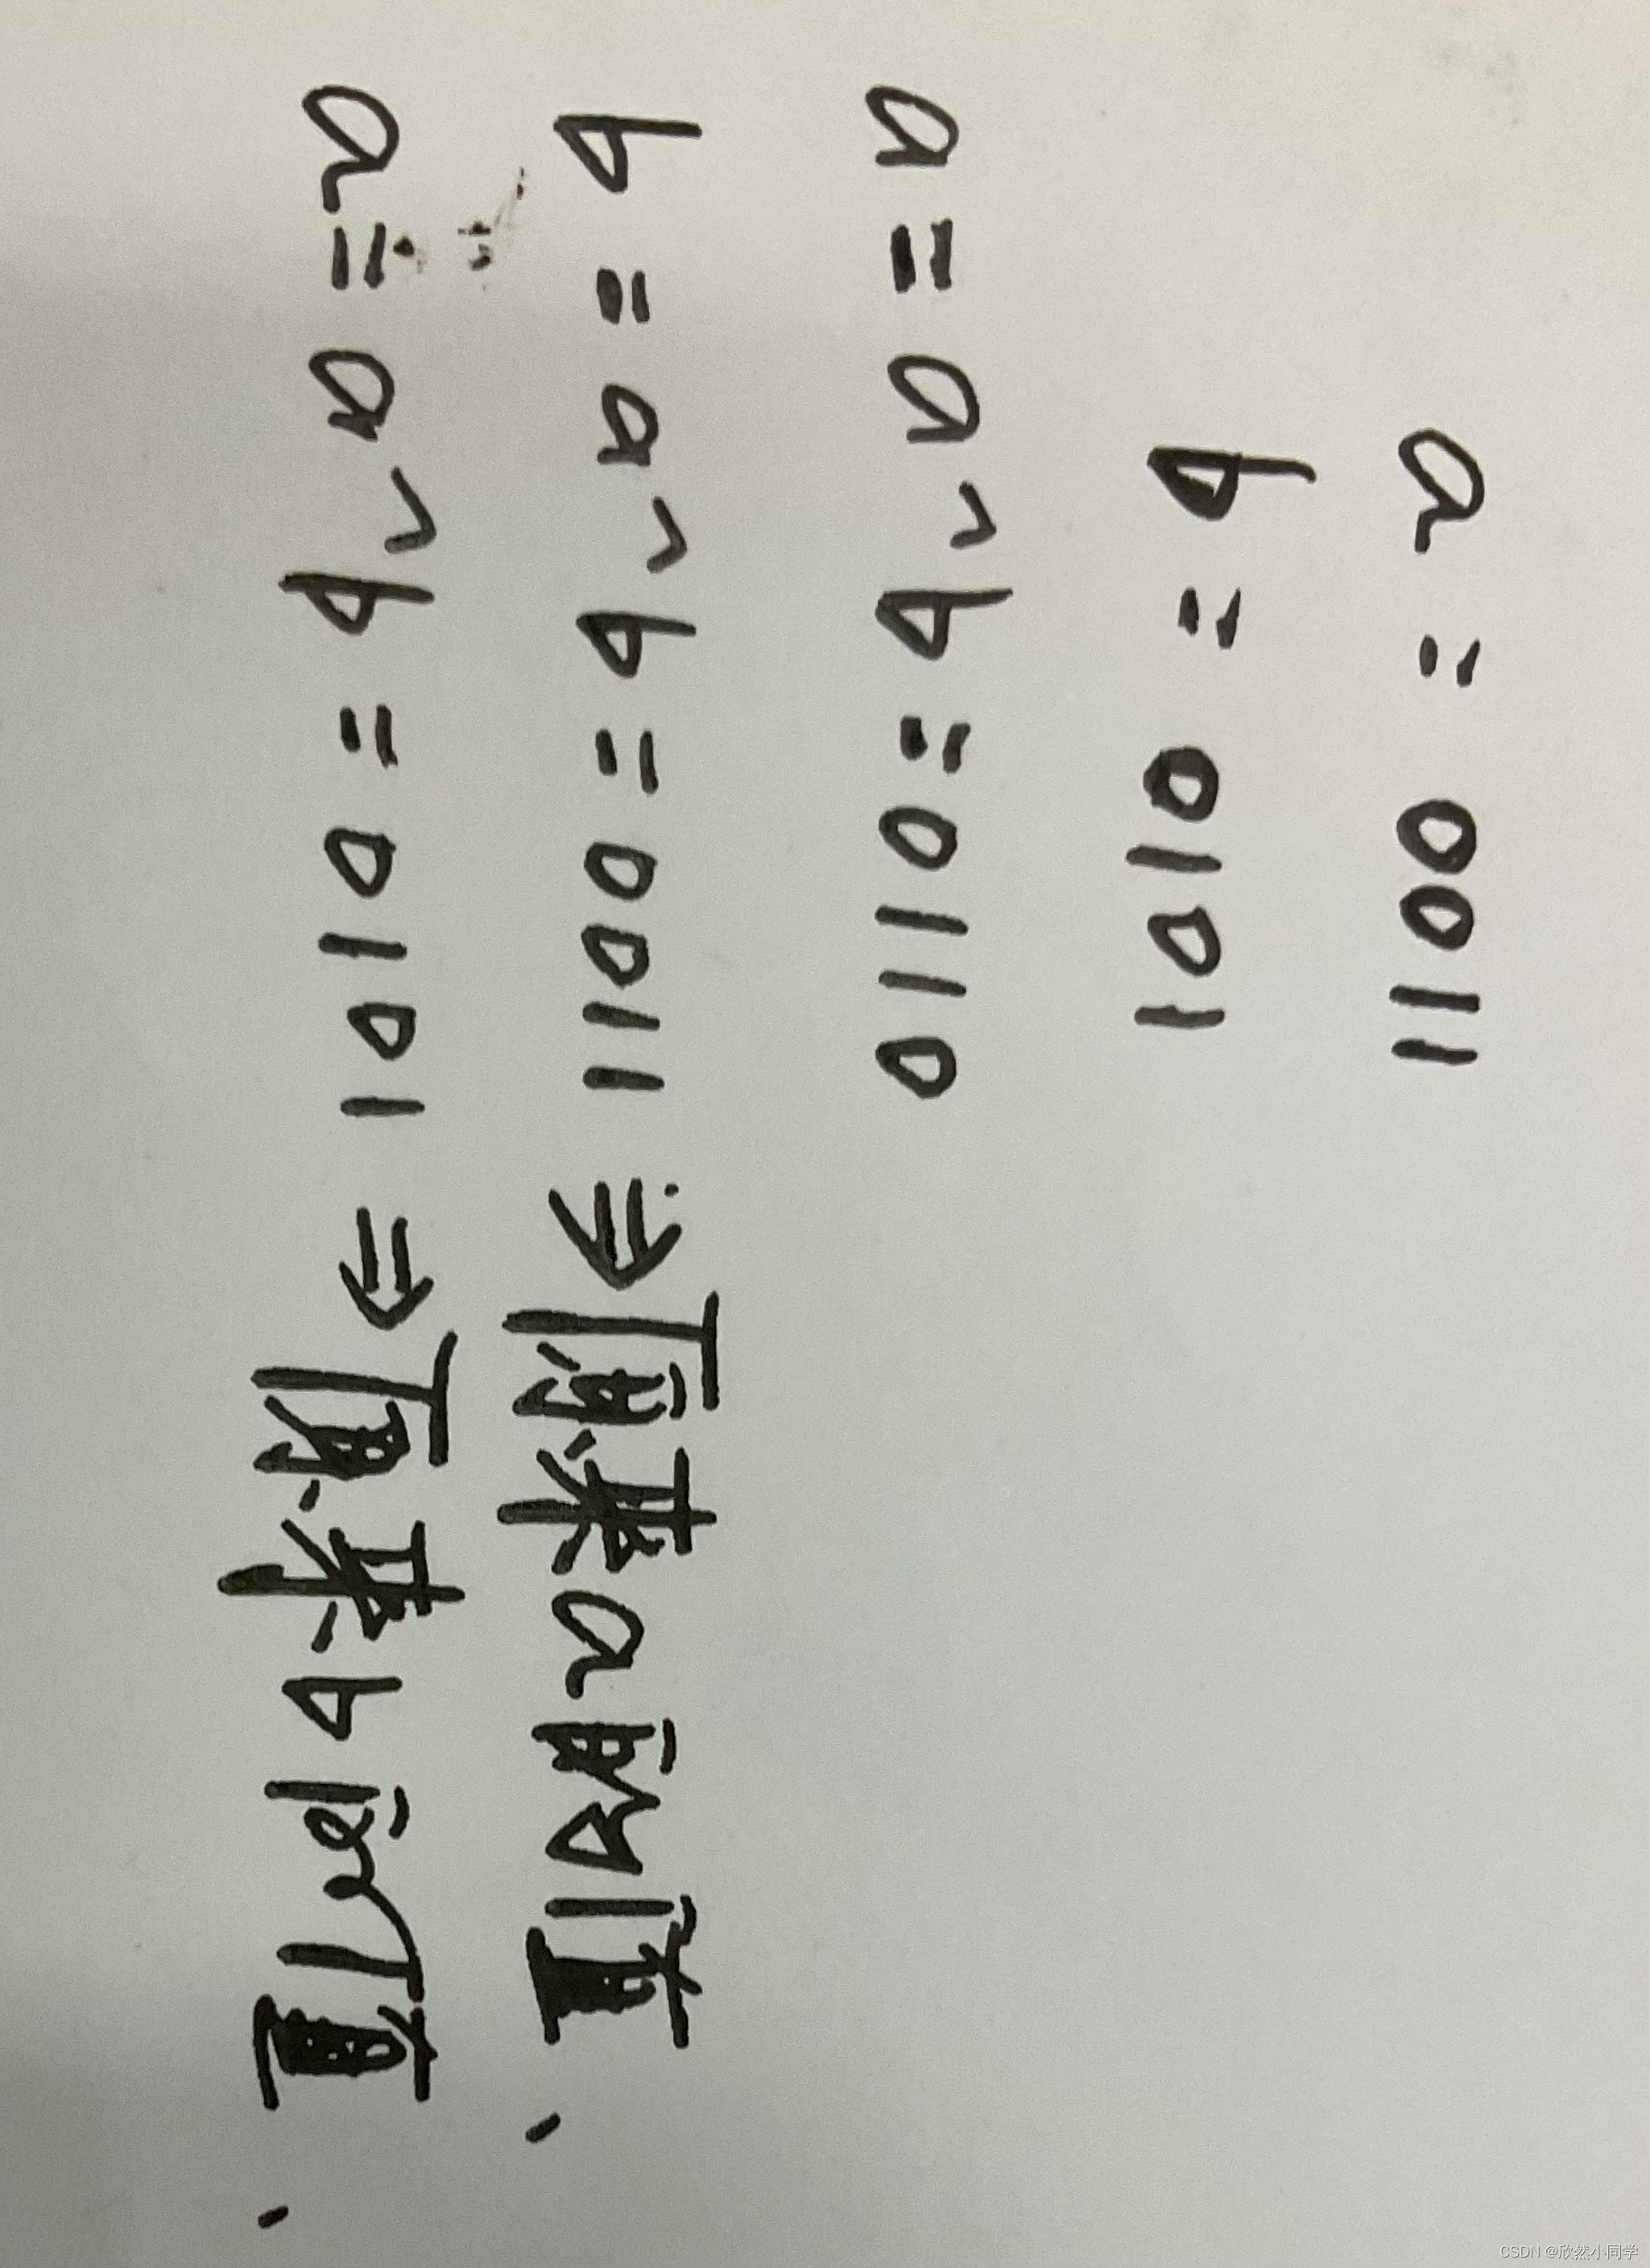 a = 0011
b = 0101
a = a^b = 0110
b = a^b = 0011 ⇒ 原来a的值,
a = a^b = 0101 ⇒ 原来b的值,
CSDN @欣然小同学